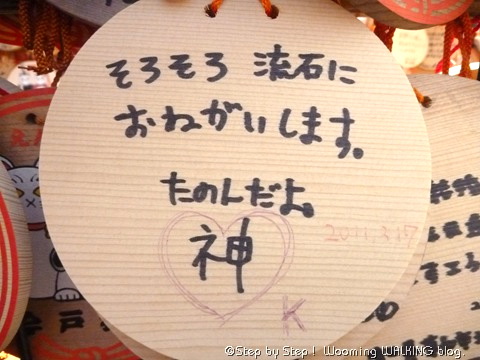 そろそろ 流石に
おねがいします。
たのんだよ。
神
2011.3.17
K
©Step by Step ! Wooming WALKING blog.